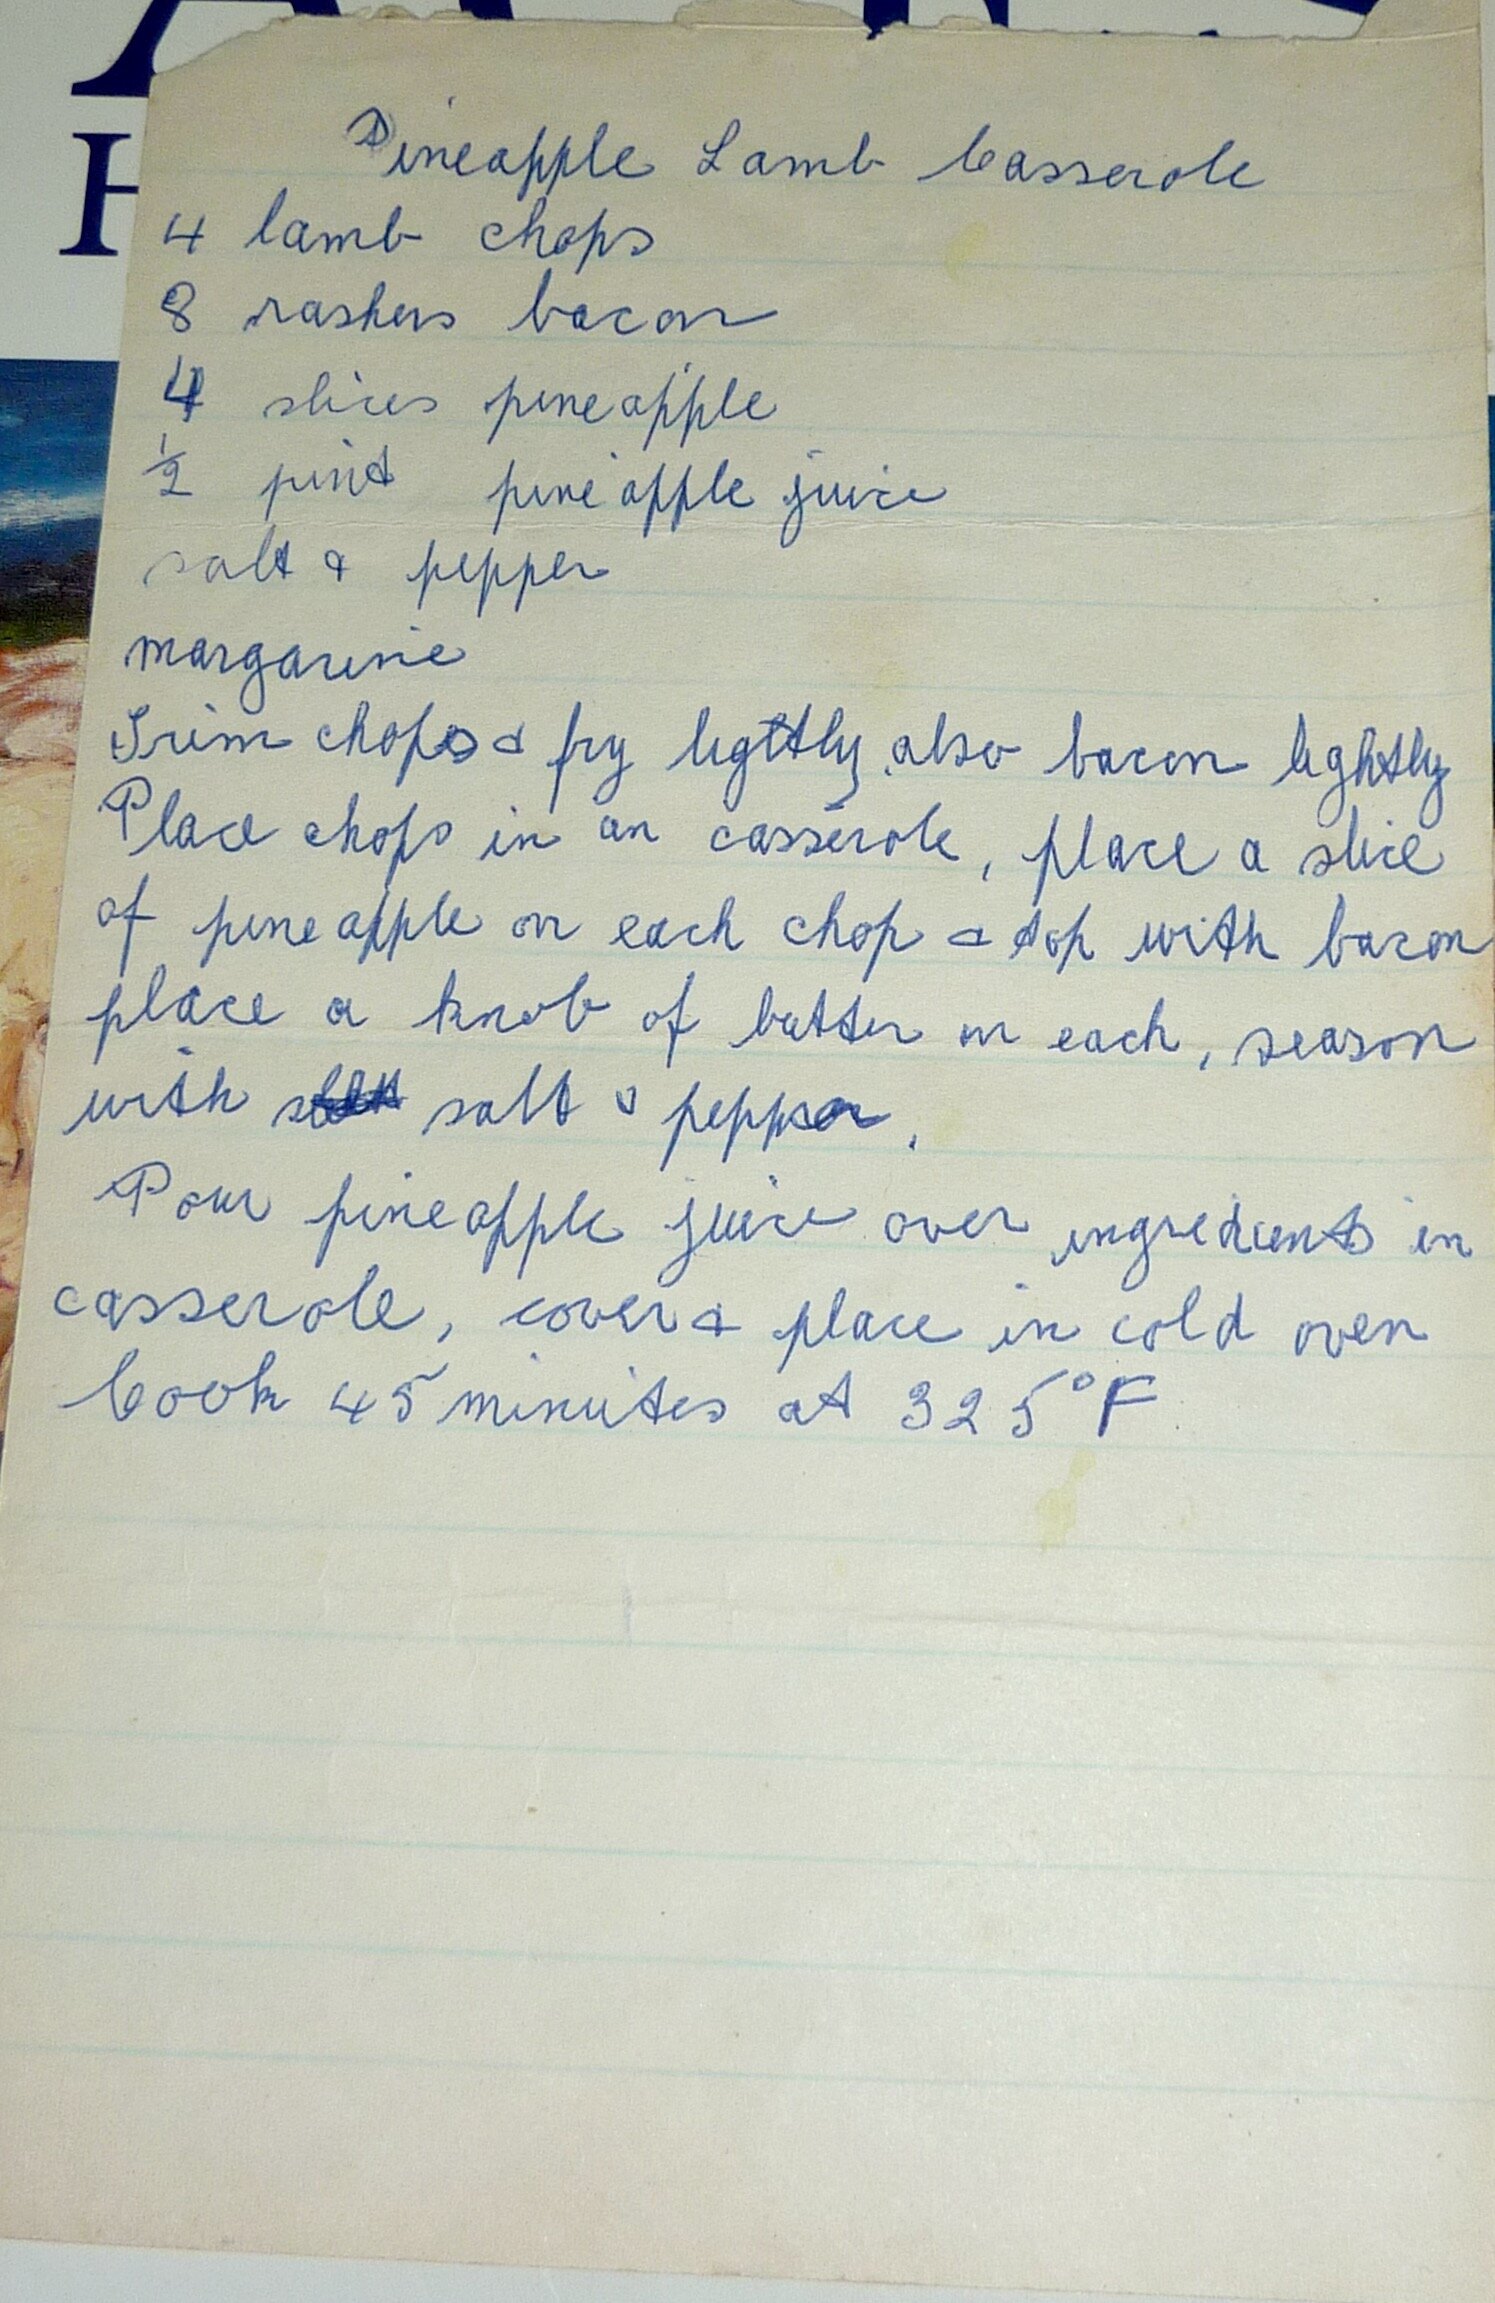 Pineapple Lamb Casserole
4 lamb chops
8 rashers bacon
4 slices pineapple
½ pint pineapple juice
salt & pepper
margarine
Trim chops & fry ligttly also bacon lightly
Place chops in an casserole, place a slice
of pineapple on each chop & top with bacon
place a knob of butter on each, season
with salt & pepper.
Pour pineapple juice over ingredients in
casserole, cover & place in cold oven
Cook 45 minutes at 325°F